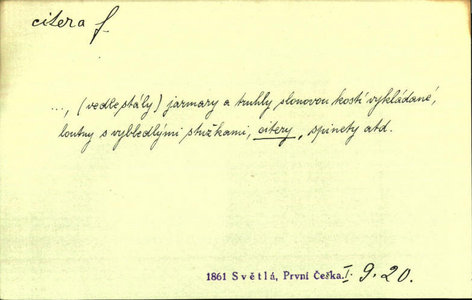 citera f.
..., (vedle stály) jarmary a truhly slonovou kostí vykládané,
loutny s vybledlými stužkami, citery, spinety atd.
1861 Světlá, První Češka. I. 9. 20.